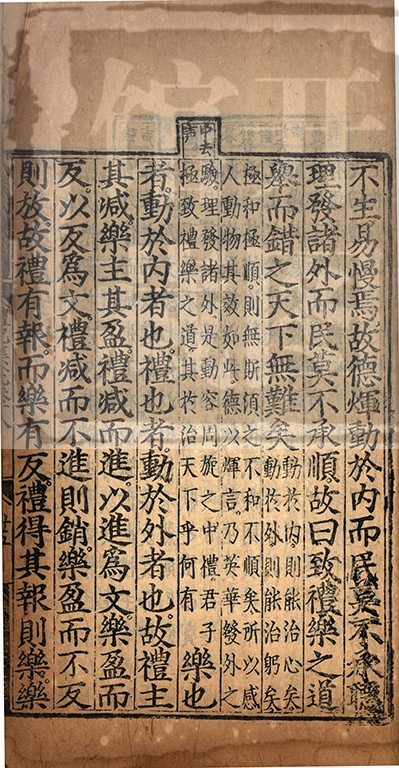 中去
聲
不生易慢焉故德煇動於內而民莫不承聽
理發諸外而民莫不承順故曰致禮樂之道
舉而錯之天下無難矣
動於內則能治心矣
動於外則能治躬矣
極和極順則無斯須之不和不順矣所以感
人動物其效如此德以煇言乃英華發外之
驗理發諸外是動容周旋之中禮君子
極致禮樂之道其於治天下乎何有
樂也
者動於內者也禮也者動於外者也故禮主
其減樂主其盈禮減而進以進爲文樂盈而
反以反爲文禮減而不進則銷樂盈而不反
則放故禮有報而樂有反禮得其報則樂樂